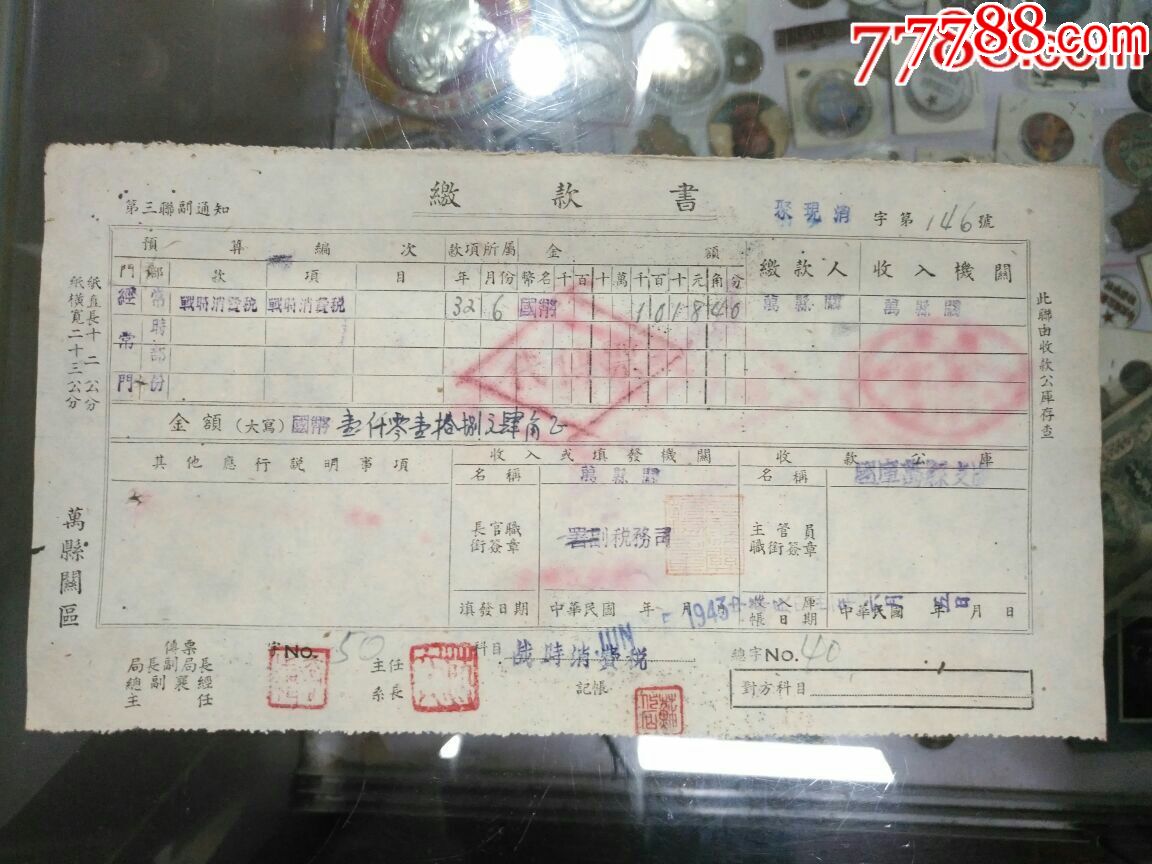 77788.com
繳款書
第三聯副通知
聚現消 字第146號
預算編次 款項所屬 金額 繳款人 收入機關
門 款 項 目 年 月份 幣名 千百十萬千百十元角分
經常 戰時消費稅 戰時消費稅 32 6 國幣 1018 40 萬縣關 萬縣關
常 時
部
門 份
金額(大寫) 國幣 壹仟零壹拾捌元肆角正
其他應行說明事項
收入或填發機關
名稱 萬縣關
長官職銜簽章 署副稅務司
填發日期 中華民國 年 月
JUN 1943
收款公庫
名稱 國庫萬縣支
主管員職銜簽章
收入庫帳日期 中華民國 年 月 日
紙直長十二公分
紙橫寬二十三公分
萬縣關區
此聯由收款公庫存查
傳票 字 NO. 50
科目 戰時消費稅
總字 NO. 40
局長副局長
總副襄經
主任
主任
系長
記帳
對方科目